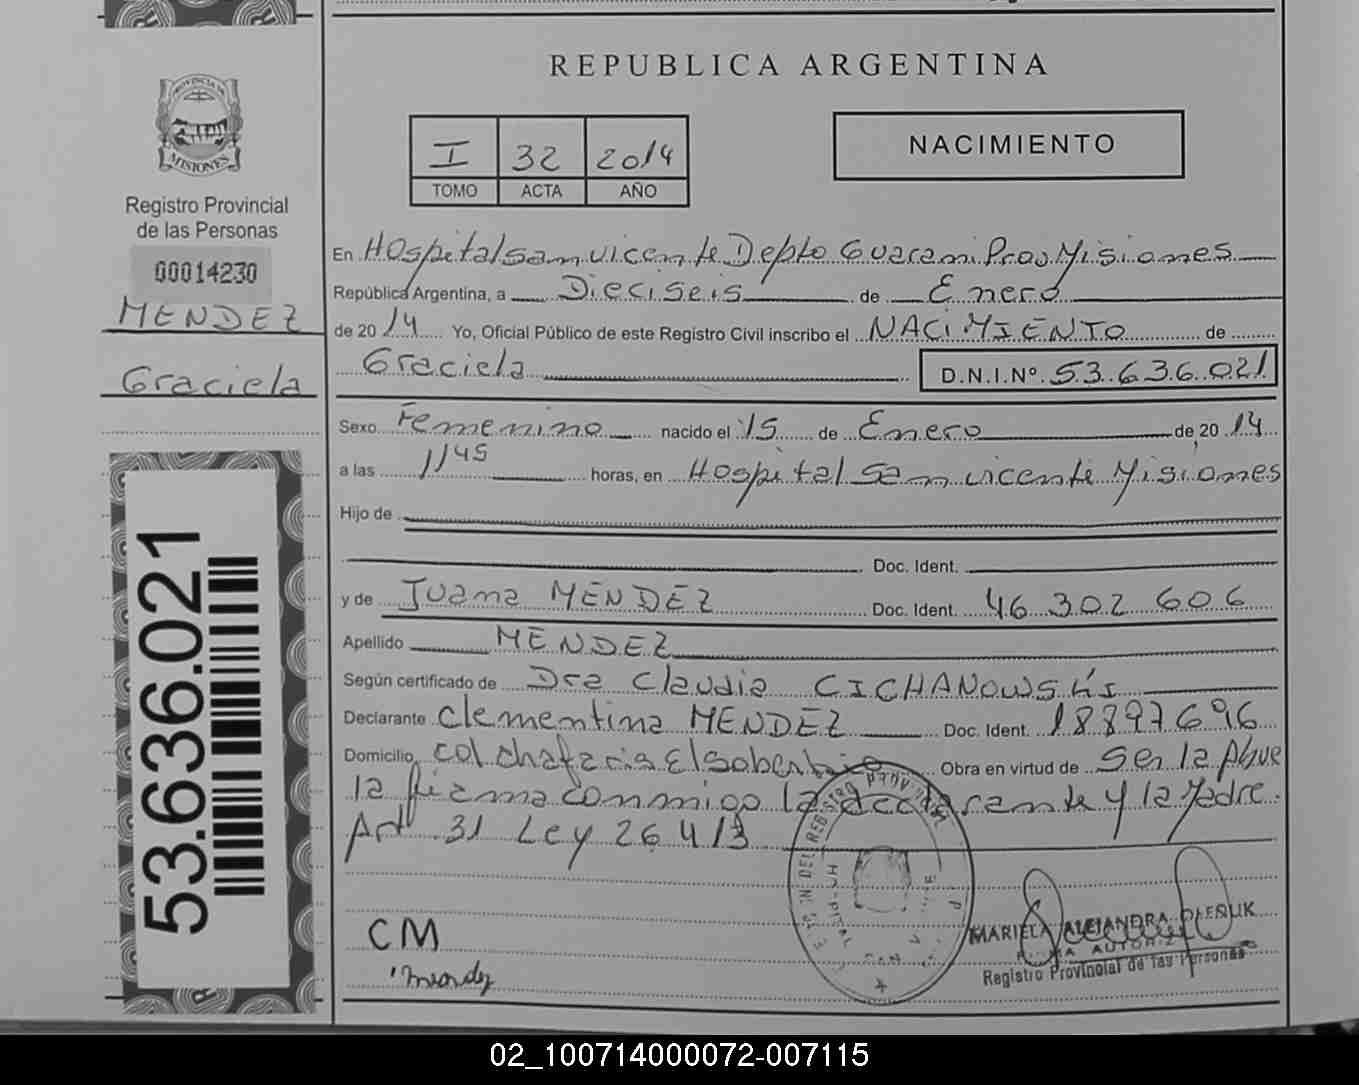 REPUBLICA ARGENTINA
PROVINCIA DE
MISIONES
Registro Provincial
de las Personas
00014230
MENDEZ
Graciela
53.636.021
I 32 2014
TOMO ACTA AÑO
NACIMIENTO
En Hospital San vicente Depto Guarani Prov Misiones
República Argentina, a Dieciseis de Enero
de 2014 Yo, Oficial Público de este Registro Civil inscribo el NACIMIENTO de
Graciela D.N.I.Nº 53.636.021
Sexo Femenino nacido el 15 de Enero de 2014
a las 11 45 horas, en Hospital San vicente Misiones
Hijo de
Doc. Ident.
y de Juana MENDEZ Doc. Ident. 46.302 606
Apellido MENDEZ
Según certificado de Dra Claudia CICHANOWSKI
Declarante Clementina MENDEZ Doc. Ident. 18897696
Domicilio Col chafaris El soberbio Obra en virtud de Ser la que
la firma conmigo la declarante y la Madre.
Art 31 Ley 26413
CM
Mendez
MARIELA ALEJANDRA OLESIUK
FIRMA AUTORIZ
Registro Provincial de las Personas
02_100714000072-007115